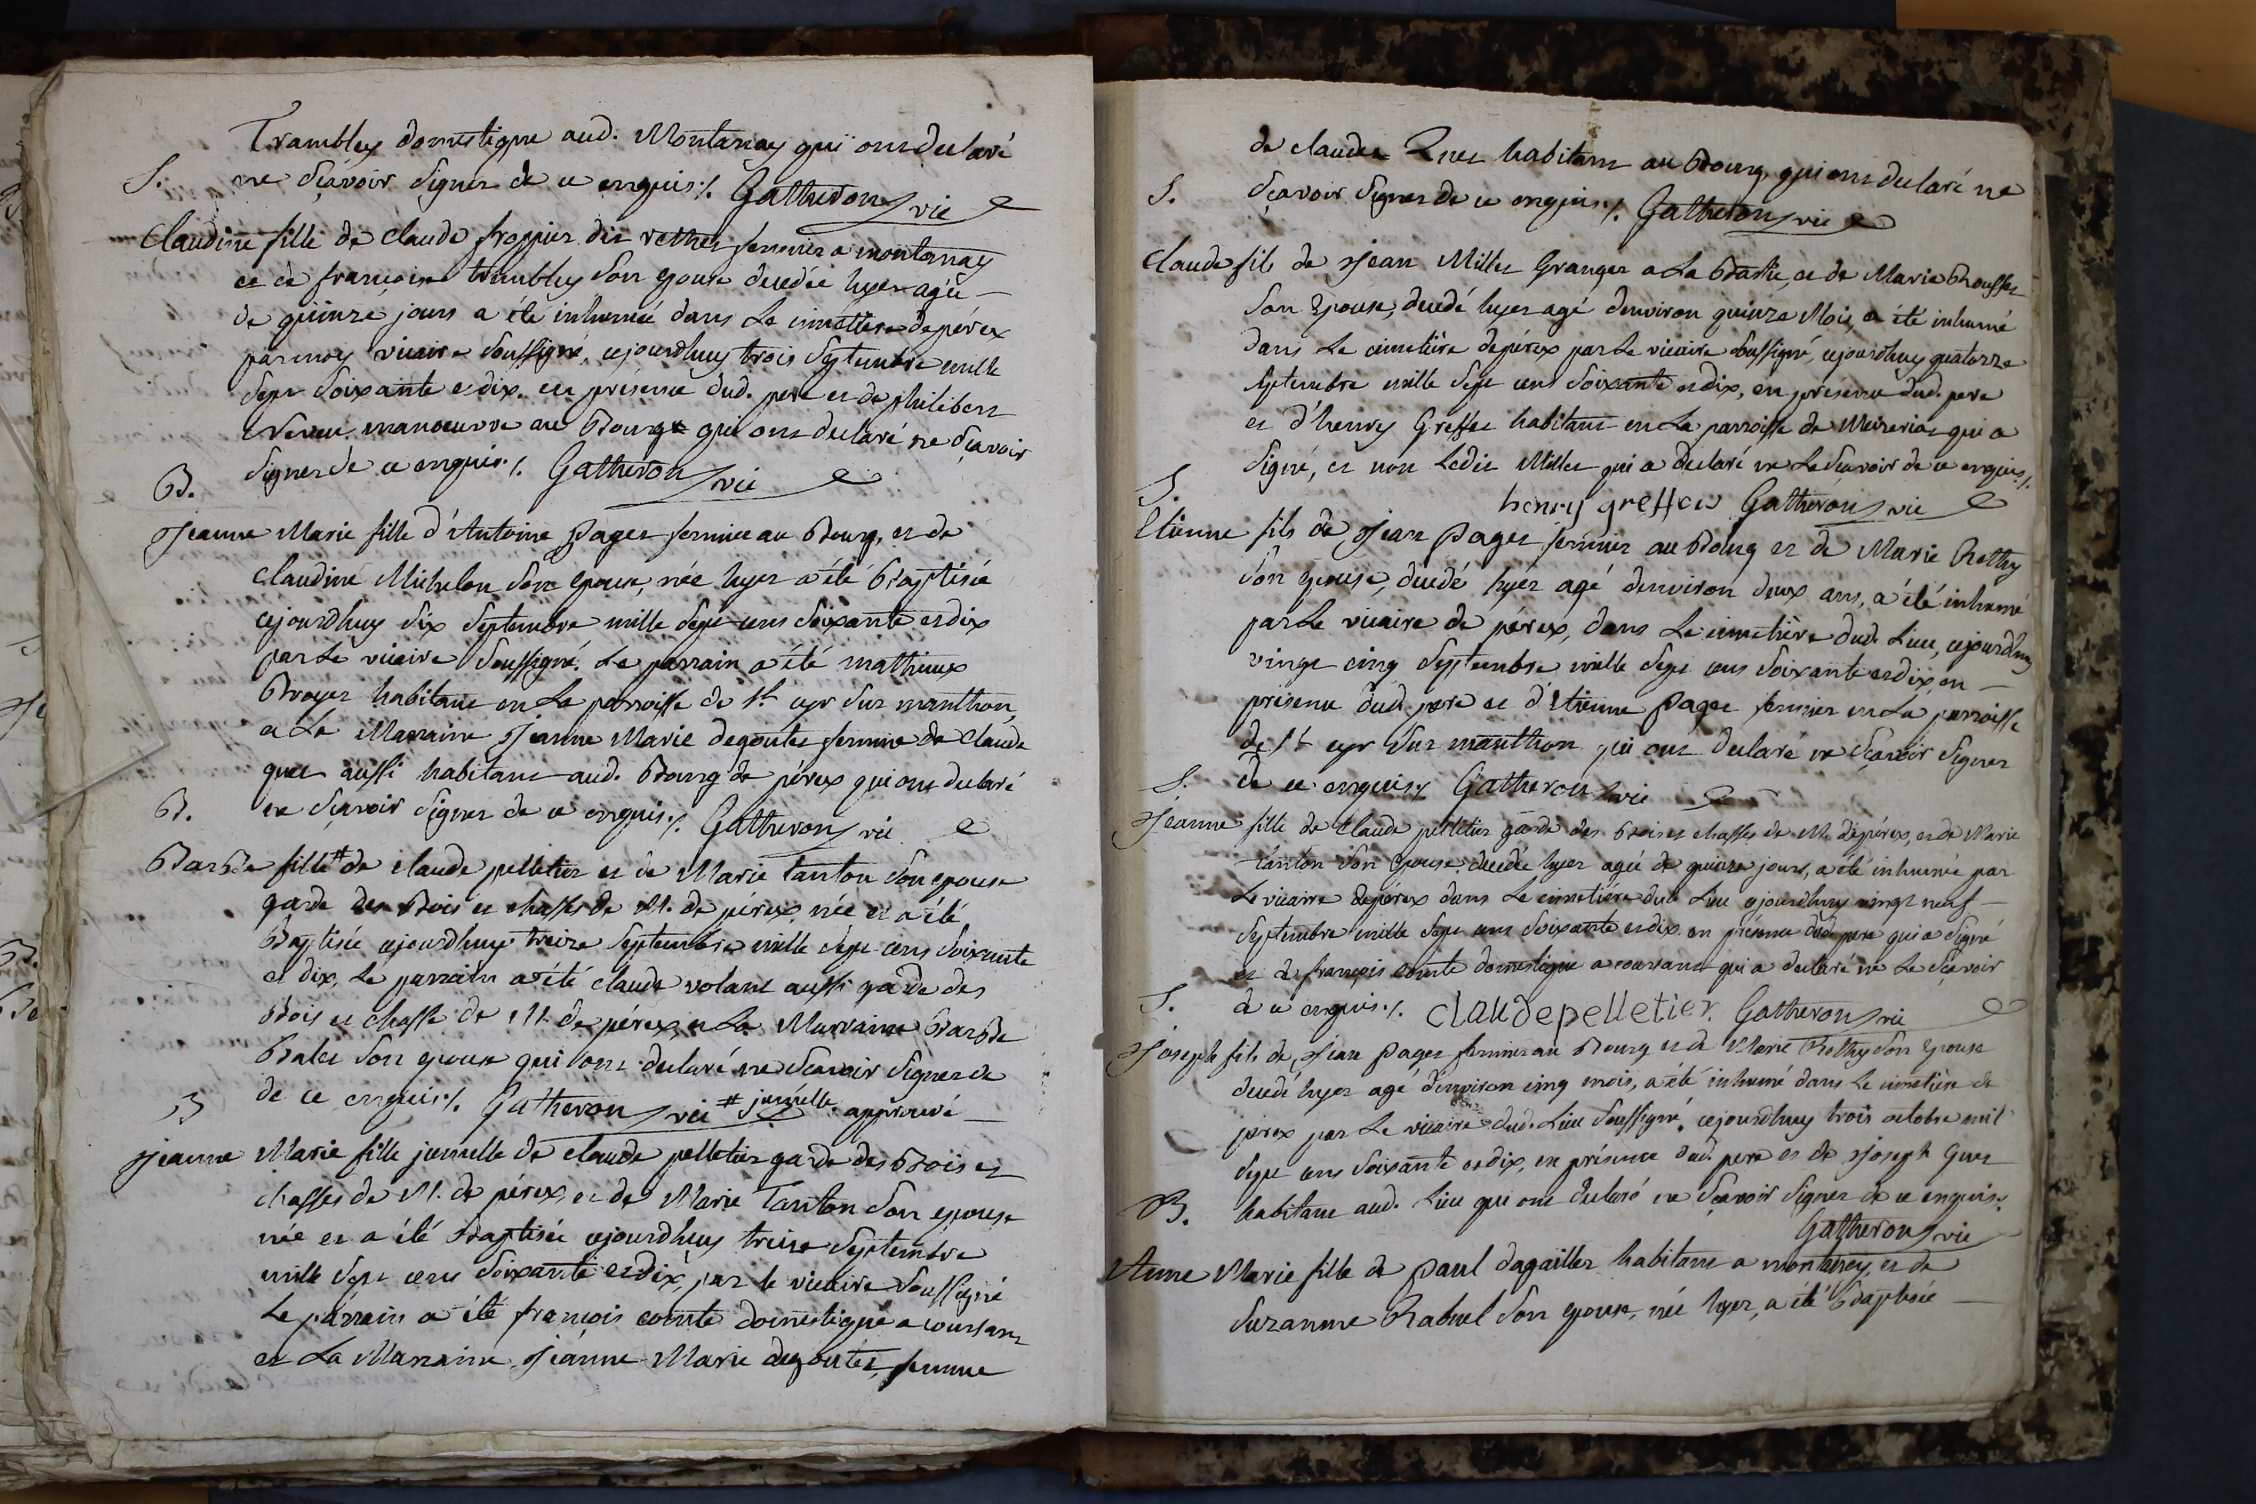 Trambley domestique aud. Montanay qui ont declaré
S. ne sçavoir signer de ce enquis ./. Gatheron vic
Claudine fille de claude froppier dit rethet fermier a montanay
et de francoise trambley son epouse decedée hyer agée
de quinze jours a été inhumée dans Le cimettiere depérex
par moy vicaire soussigné, cejourdhuy trois septembre mille
sept soixante et dix. en présence dud. pere et de philibert
neveu manoeuvre au Bourg qui ont declaré ne sçavoir
signer de ce enquis ./. Gatheron vic
B.
Jeanne Marie fille d'Antoine Pages fermier au Bourg, et de
claudine Michelon son epouse, née hyer a été Baptisée
cejourdhuy six septembre mille sept cens soixante et dix
par Le vicaire soussigné. Le parrain a été mathieux
Broyer habitant en La parroisse de St. cyr sur manthon,
et La Marraine Jeanne Marie degoutes femme de claude
quet aussi habitans aud. Bourg de pérex qui ont declaré
B. ne sçavoir signer de ce enquis ./. Gatheron vic
Barbe fille # de claude pelletier et de Marie tanton son epouse
garde des Bois et chasses de M. de pérex, née et a été
Baptisée cejourdhuy treize septembre mille sept cens soixante
et dix, Le parrain a été claude volant aussi garde des
Bois et chasse de M. de pérex, et La Marraine Barbe
Balet son epouse qui ont declaré ne sçavoir signer de
de ce enquis ./. Gatheron vic # jumelle approuvé
B
Jeanne Marie fille jumelle de claude pelletier garde des Bois et
chasses de M. de pérex, et de Marie Tanton son epouse
née et a été Baptisée cejourdhuy treize septembre
mille sept cens soixante et dix, par le vicaire soussigné
Le parrain a été françois comte domestique a coursant
et La Marraine Jeanne Marie degoutes, femme
de claude quet habitans au Bourg, qui ont declaré ne
S. sçavoir signer de ce enquis ./. Gatheron vic
Claude fils de Jean Millet Granger a La Bastie, et de Marie Brousses
son Epouse, decedé hyer agé denviron quinze Mois, a été inhumé
dans Le cimetiere depérex par Le vicaire soussigné, cejourdhuy quatorze
septembre mille sept cens soixante et dix, en presence dud. pere
et d'henry Greffet habitant en La parroisse de Mezeriat qui a
signé, et non Ledit Millet qui a declaré ne Le sçavoir de ce enquis ./.
S. henry greffet Gatheron vic
Etienne fils de Jean Pages fermier au Bourg et de Marie Rethy
son epouse, decedé hyer agé denviron deux ans, a été inhumé
par Le vicaire de pérex, dans Le cimetière dud. Lieu, cejourdhuy
vingt cinq septembre mille sept cens soixante et dix, en
présence dud. pere et d'Etienne Pages fermier en La parroisse
de St cyr sur manthon qui ont declaré ne sçavoir signer
S. de ce enquis ./. Gatheron vic
Jeanne fille de Claude pelletier garde des Bois et chasses de M. depérex, et de Marie
tanton son epouse, decedée hyer agée de quinze jours, a été inhumée par
Le vicaire depérex dans Le cimetière dud. Lieu cejourdhuy vingt neuf
septembre mille sept cens soixante et dix en présence dud. pere qui a signé
et de françois comte domestique a coursant qui a declaré ne Le sçavoir
S. de ce enquis ./. claudepelletier. Gatheron vic
Joseph fils de Jean Pages fermier au Bourg et de Marie Rethy son epouse
decedé hyer agé denviron cinq mois, a été inhumé dans Le cimetière de
perex par Le vicaire dud. Lieu soussigné, cejourdhuy trois octobre mil
sept cens soixante et dix, en présence dud. pere et de Joseph quet
B. habitans aud. Lieu qui ont declaré ne sçavoir signer de ce enquis ./.
Gatheron vic
Anne Marie fille de Paul dagallier habitant a montepey, et de
Suzanne Rabuel son epouse, née hyer, a été Baptisée